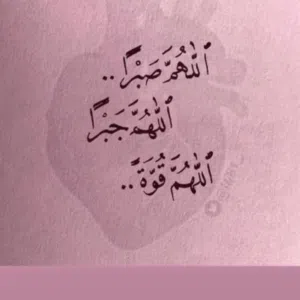 اللَّهُمَّ صَبْرًا ..
اللَّهُمَّ جَبْرًا
اللَّهُمَّ قُوَّةً ..